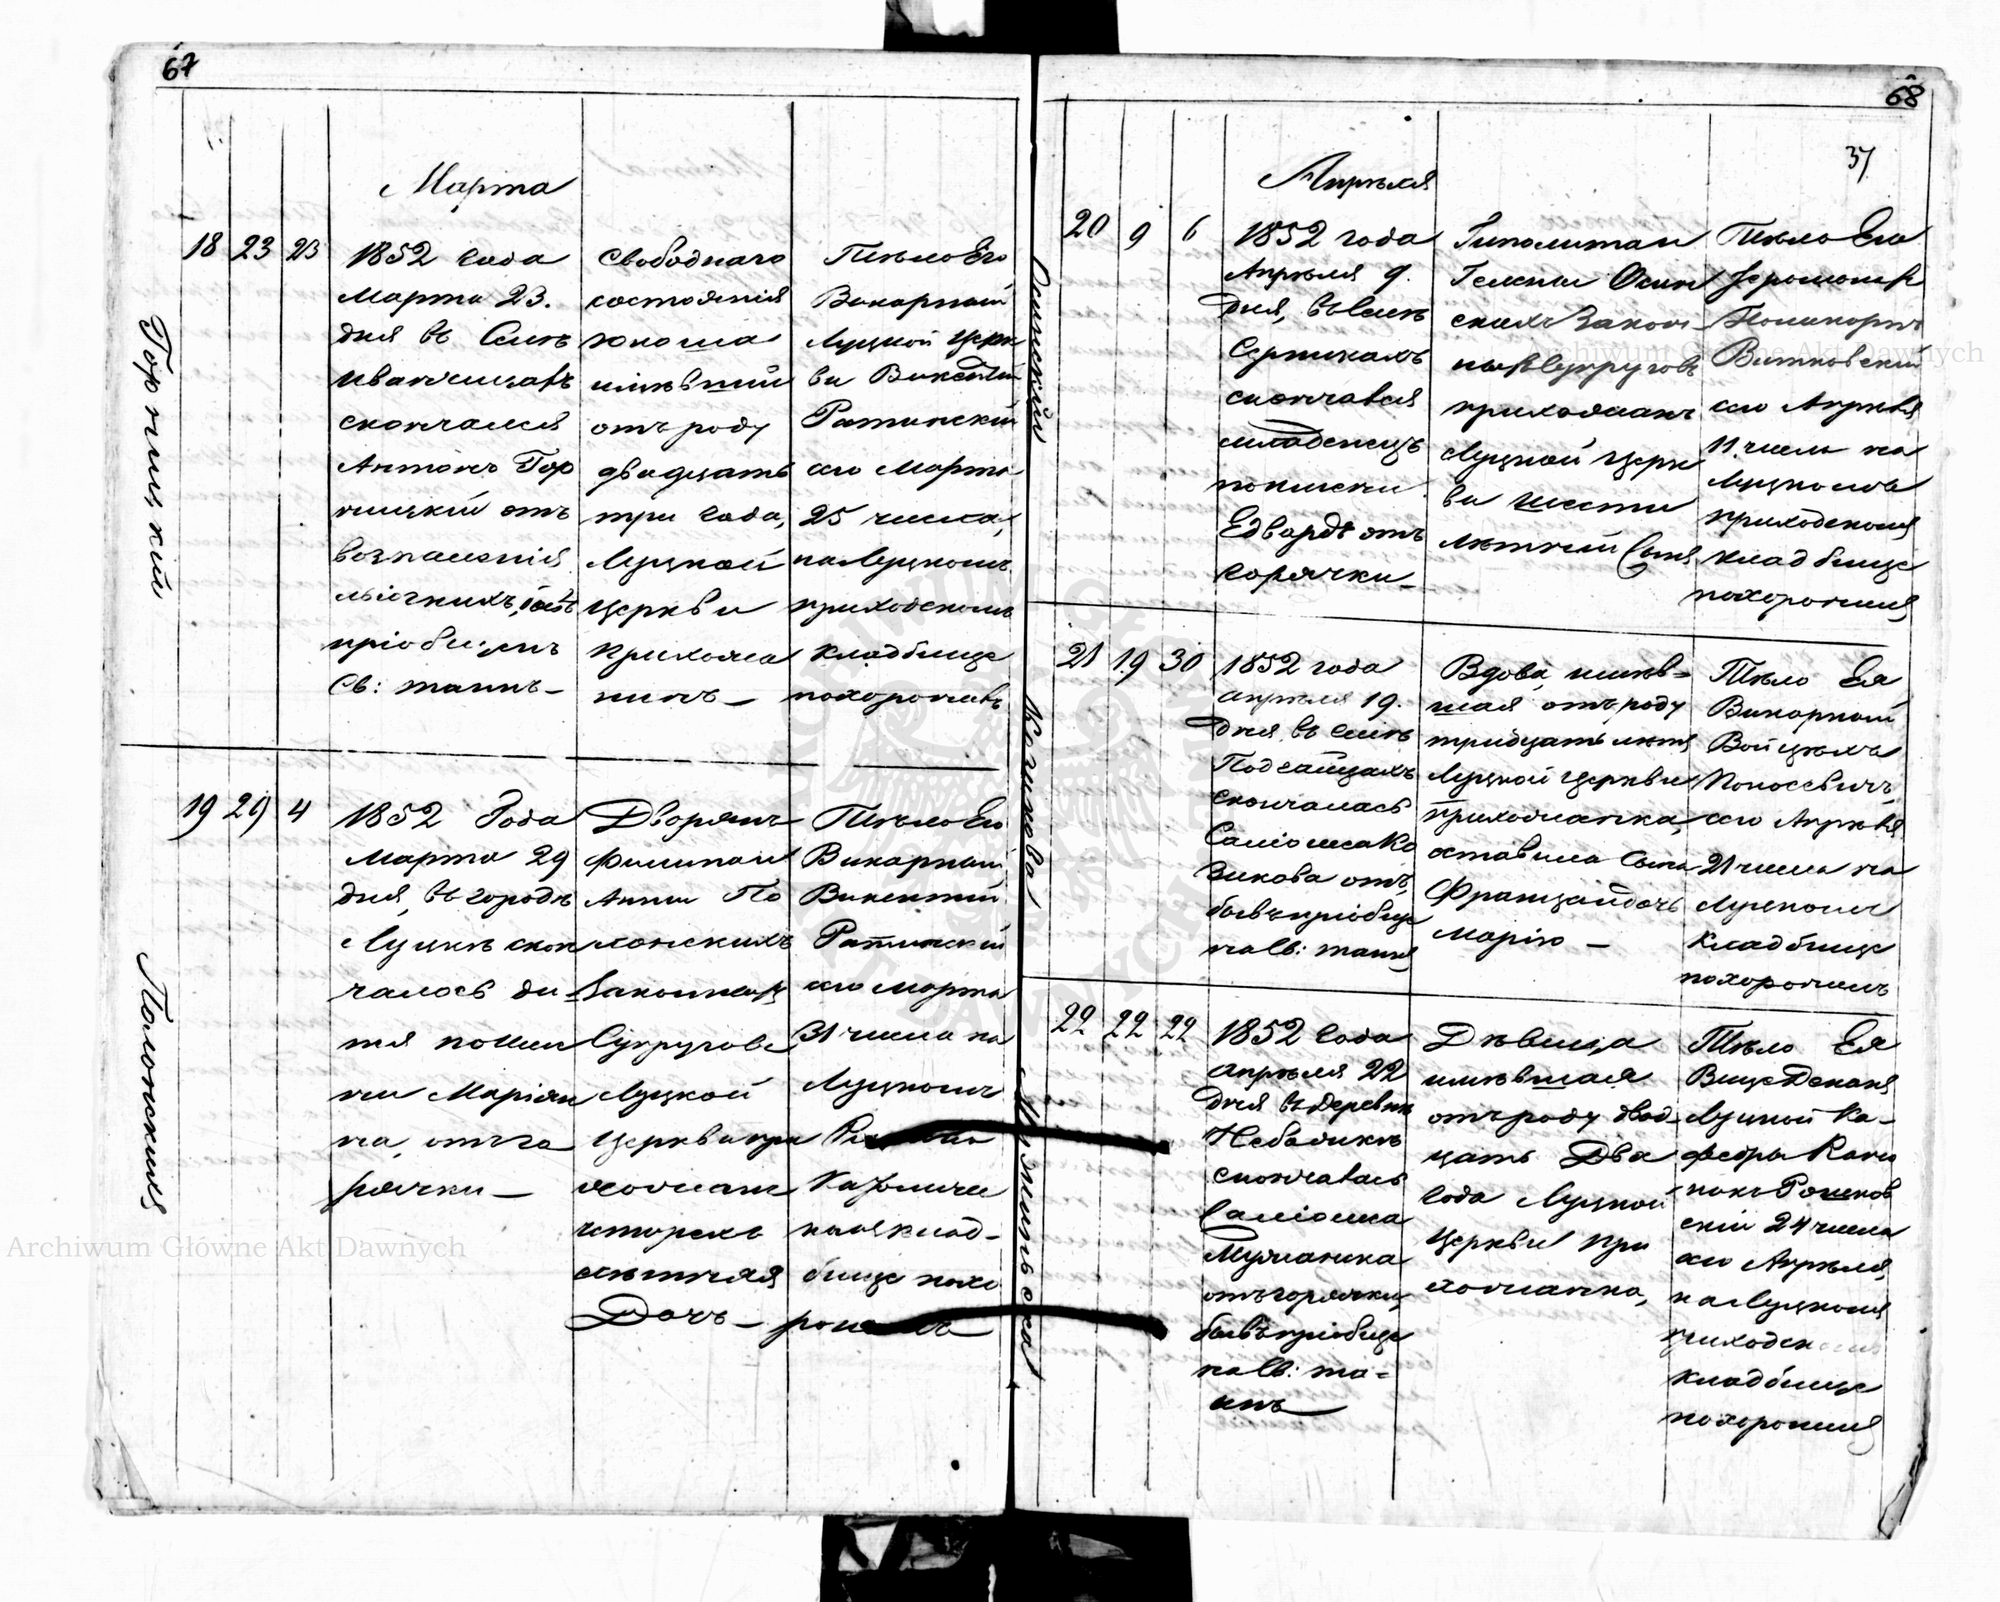 67
Марта
Горницкий
18 23 23
1852 года
Марта 23.
дня въ Селѣ
Иванчицахъ
скончался
Антонъ Гор
ницкій отъ
воспаленія
пріобщенъ
Св: таинъ–
Свободнаго
состоянія
юноша
имѣвшій
отъ роду
двадцать
три года,
Луцкой
Церкви
Прихожа
нинъ–
Тѣло Его
Викарный
Луцкой Церк
ви Викентій
Ратинскій
сего Марта
25 числа,
на Луцкомъ
приходскомъ
кладбище
похоронилъ
Полонския
19 29 4
1852 Года
Марта 29
дня, въ городѣ
Луцкѣ скон
чалось ди
тя по имя
ни Маріян
на, отъ го
рячки–
Дворянъ
Филипа и
Анны По
лонскихъ
Законныхъ
Супруговъ
Луцкой
Церкви при
хожанъ
четырехъ
лѣтняя
Дочь–
Тѣло Его
Викарный
Викентій
Ратинскій
сего Марта
31 числа на
Луцкомъ
Римско
Католиче
кладбище похо
68
37
Апрѣля
Осинский
20 9 6
1852 года
Апрѣля 9.
дня, въ Селѣ
Серникахъ
скончался
младенецъ
по имени
Едвардъ отъ
горячки–
Гиполита и
Гелены Осин
скихъ Закон–
ныхъ Супруговъ
прихожанъ
Луцкой Церк
ви шести
лѣтній Сынъ
Тѣло Его
Іеромонах
Поликарпъ
Витковский
сего Апрѣля
11 числа на
Луцкомъ
приходскомъ
кладбище
похоронилъ
Козикова
21 19 30
1852 года
апрѣля 19.
дня въ Селѣ
Подгайцахъ
скончалась
Саломея Ко
зикова отъ
бывъ пріобще
на Св: таинъ
Вдова, имѣв–
шая отъ роду
тридцать лѣтъ
Луцкой Церкви
прихожанка,
оставила Сына
Франца и дочь
Марію –
Тѣло Ея
Викарный
Войцѣхъ
сего Апрѣля
21 числа на
Луцкомъ
кладбище
похоронилъ
22 22 22
1852 Года
апрѣля 22
дня въ деревнѣ
скончалась
Саломея
отъ горячки,
бывъ пріобще
на Св: та–
инъ
Дѣвица
имѣвшая
отъ роду двад
цать Два
Года Луцкой
Церкви При
хожанка,
Тѣло Ея
Вице Деканъ
Луцкой Ка–
федры Кано
никъ
скій 24 числа
сего Апрѣля,
на Луцкомъ
приходск
кладбище
похоронилъ
Archiwum Główne Akt Dawnych
Archiwum Główne Akt Dawnych